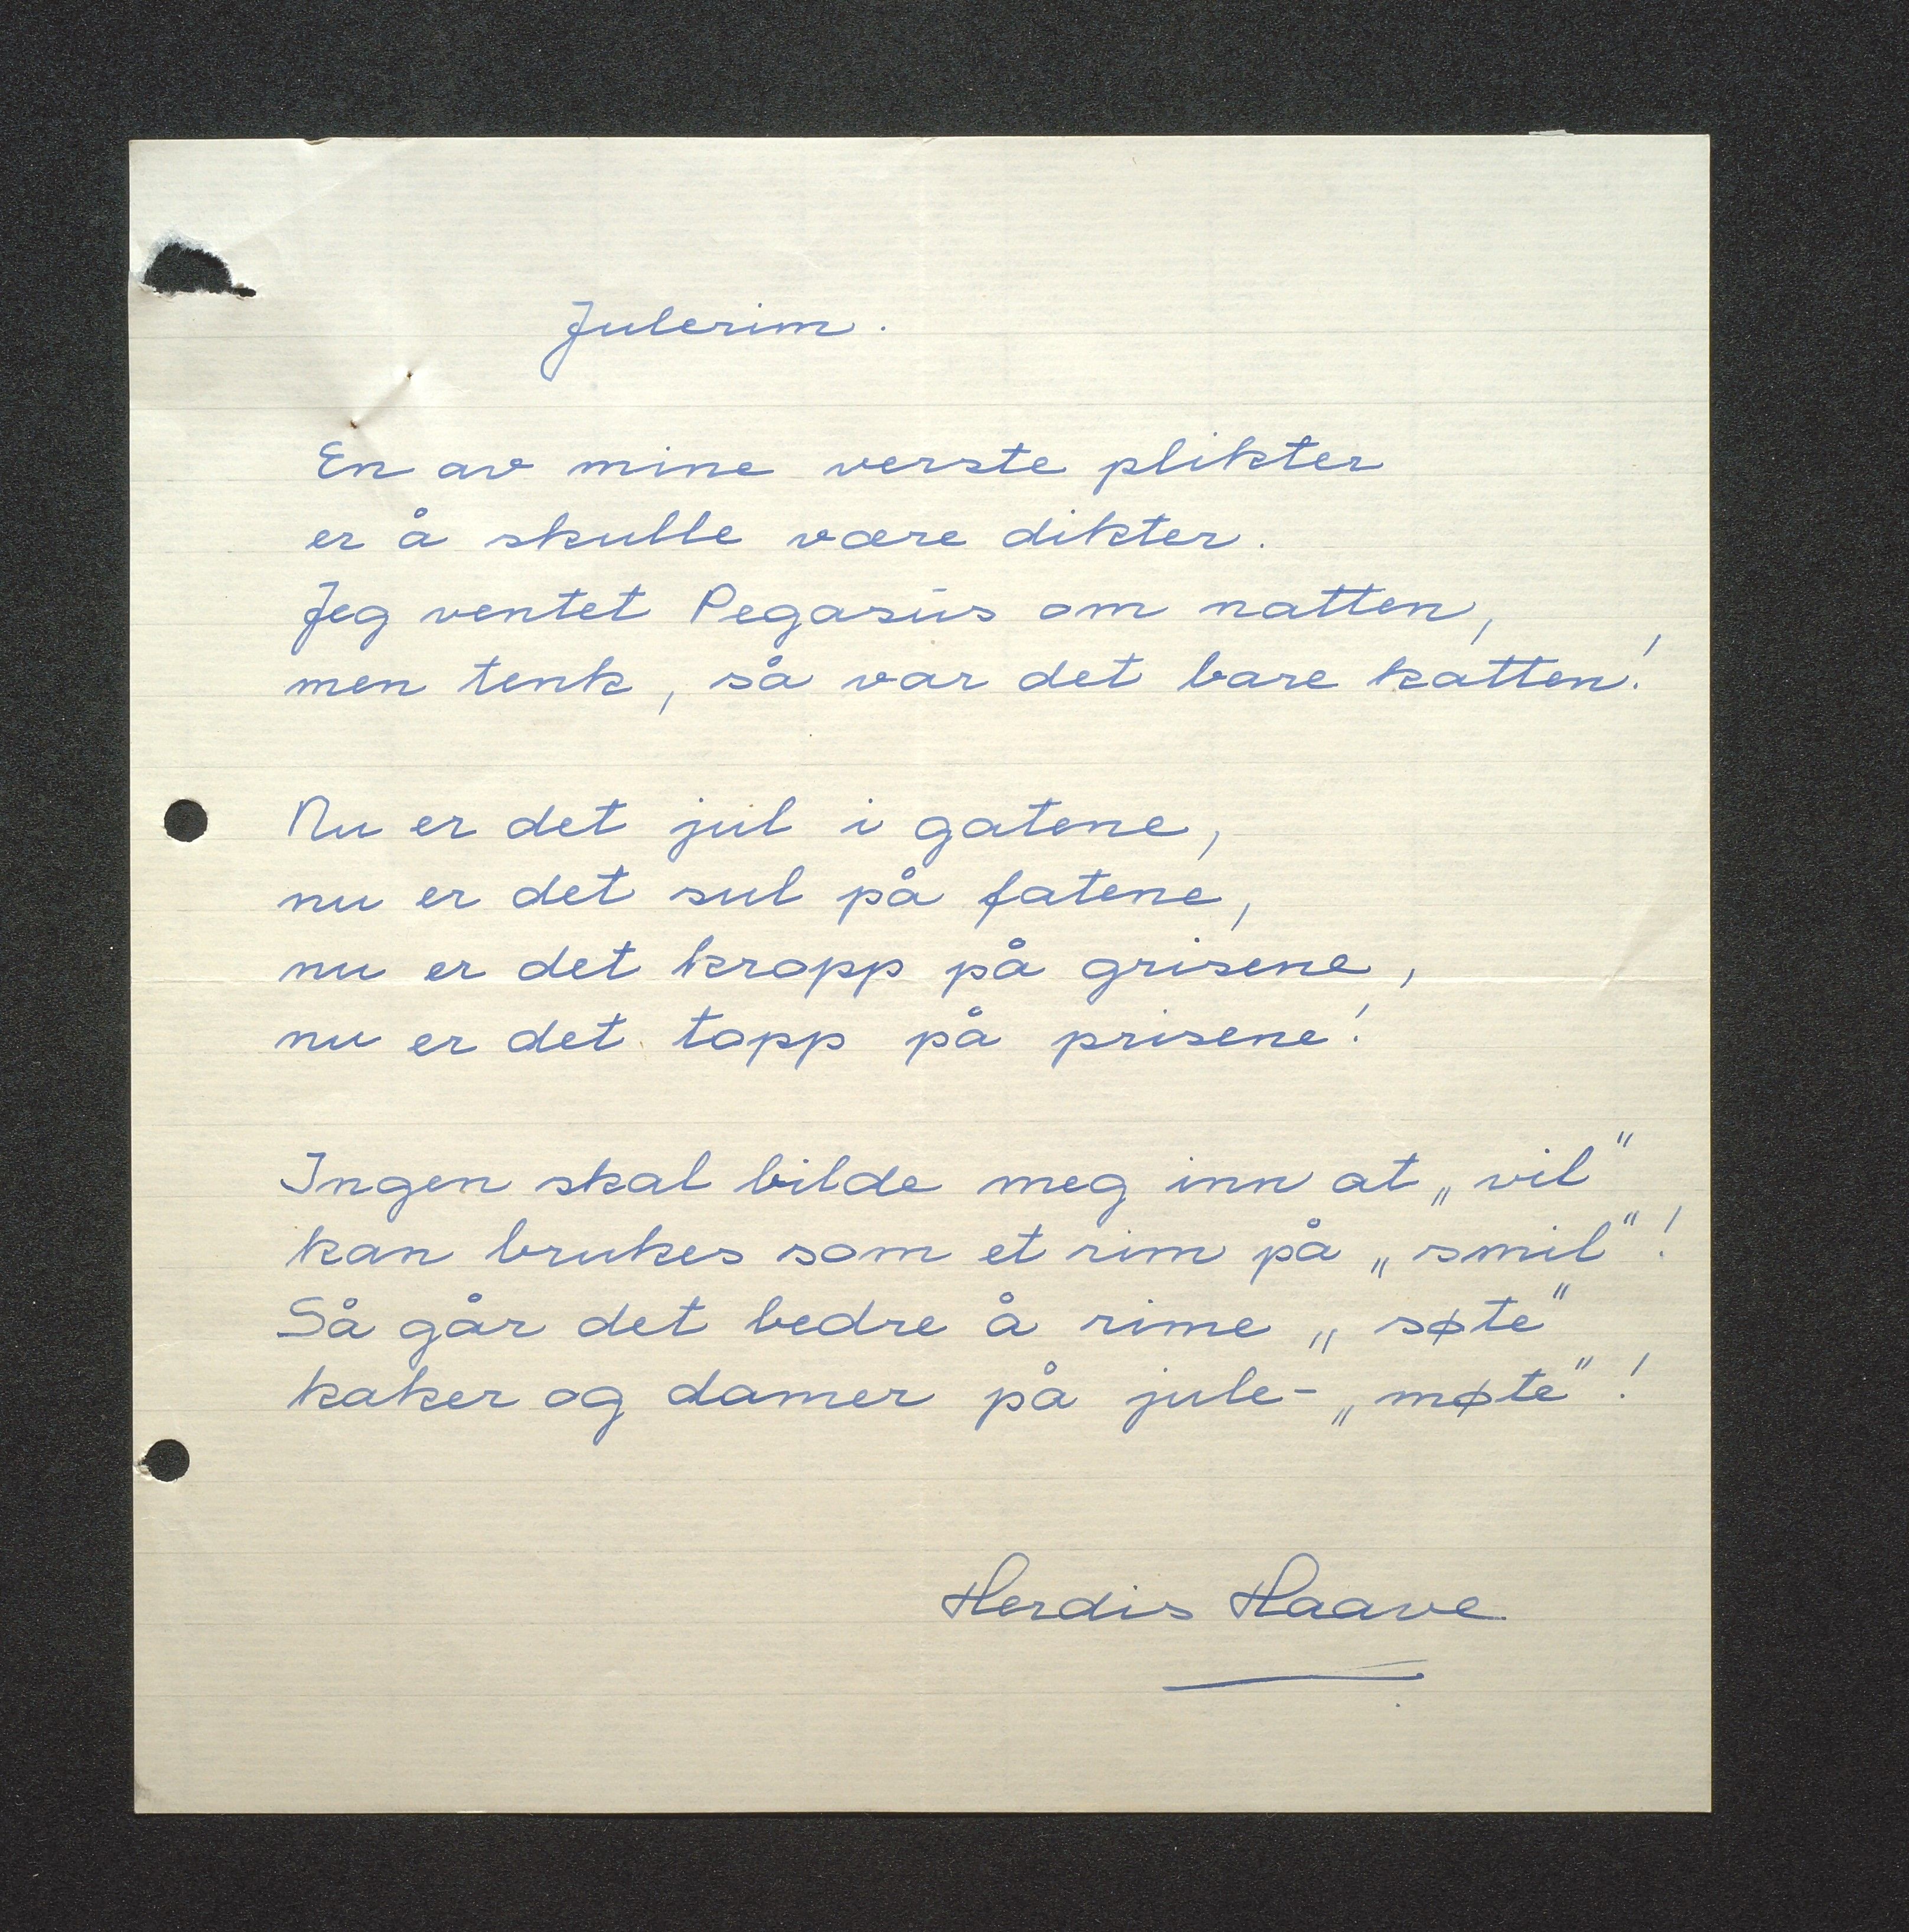 Julerim.
En av mine verste plikter
er å skulle være dikter.
Jeg ventet Pegasus om natten,
men tenk, så var det bare katten!
Nu er det jul i gatene,
nu er det sul på fatene,
nu er det kropp på grisene,
nu er det topp på prisene!
Ingen skal bilde meg inn at „vil“
kan brukes som et rim på „smil“!
Så går det bedre å rime „søte“
kaker og damer på jule-„møte“!
Herdis Haave